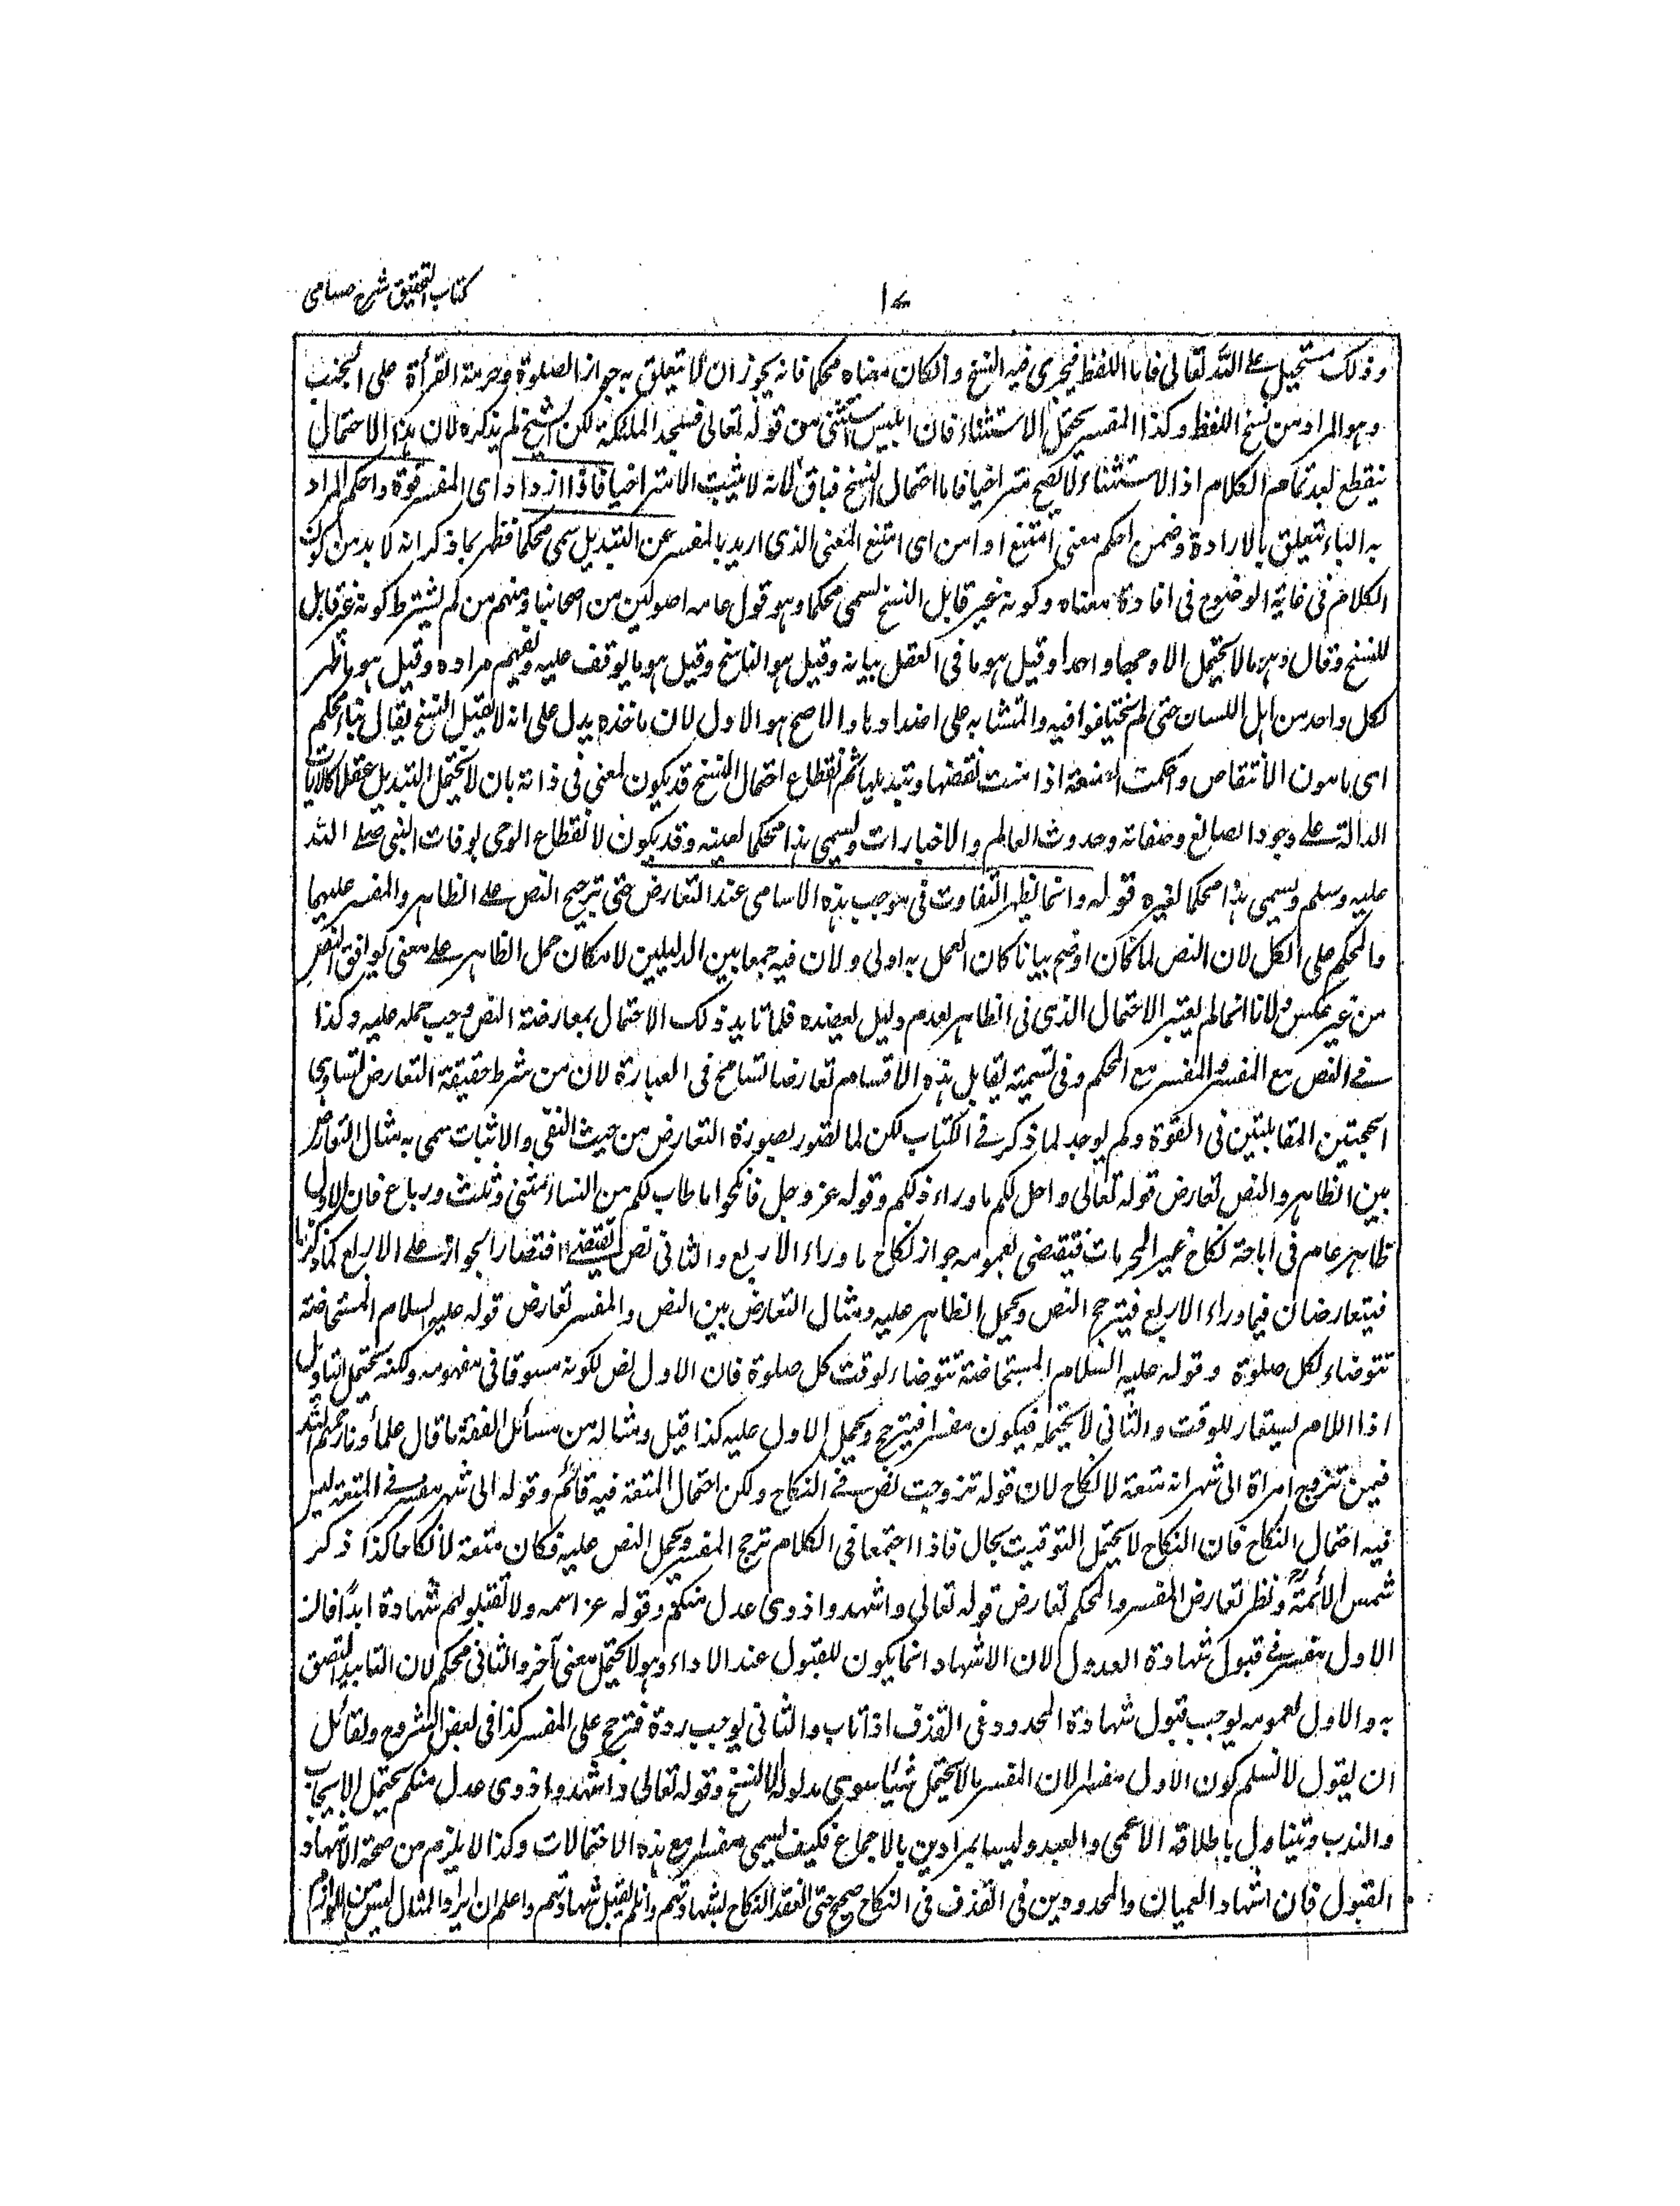 كتاب التحقيق شرح حسامى
وذلك مستحيل على الله تعالى فاما اللفظ فيجرى فيه النسخ وان كان معناه محكما فانه يجوز ان لا يتعلق به جواز الصلوة وحرمة القرأة على الجنب
وهو المراد من نسخ اللفظ وكذا المفسر يحتمل الاستثناء فان ابليس استثنى من قوله تعالى فسجد الملئكة لكن الشيخ لم يذكره لان هذا الاحتمال
ينقطع بعد تمام الكلام اذ الاستثناء لا يصح متراخيا فاما احتمال النسخ فباق لانه لا يثبت الا متراخيا فاذا ازداد اى المفسر قوة واحكم المراد
به الباء يتعلق بالارادة وضمن احكم معنى امتنع او امن اى امتنع المعنى الذى اريد بالمفسر عن التبديل سمى محكما فظهر بما ذكر انه لا بد من كون
الكلام فى غاية الوضوح فى افادة معناه وكونه غير قابل النسخ ليسمى محكما وهو قول عامه اصوليين من اصحابنا ومنهم من لم يشترط كونه غير قابل
للنسخ وقال هو ما لا يحتمل الا وجها واحدا وقيل هو ما فى العقل بيانه وقيل هو الناسخ وقيل هو ما يوقف عليه ويفهم مراده وقيل هو ما ظهر
لكل واحد من اهل اللسان حتى لم يختلفوا فيه والمتشابه على اضدادها والاصح هو الاول لان ماخذه يدل على انه لا يقبل النسخ يقال بناء محكم
اى مامون الانتقاض واحكمت الصنعة اذا امنت نقضها وتبديلها ثم انقطاع احتمال النسخ قد يكون لمعنى فى ذاته بان لا يحتمل التبديل عقلا كالايات
الدالة على وجود الصانع وصفاته وحدوث العالم والاخبارات ويسمى هذا محكما لعينه وقد يكون لانقطاع الوحى بوفات النبى صلى الله
عليه وسلم ويسمى هذا محكما لغيره قوله وانما يظهر التفاوت فى موجب هذه الاسامى عند التعارض حتى يترجح النص على الظاهر والمفسر عليهما
والمحكم على الكل لان النص لما كان اوضح بيانا كان العمل به اولى ولان فيه جمعا بين الدليلين لامكان حمل الظاهر على معنى يوافق النص
من غير عكس ولانا انما لم يعتبر الاحتمال الذى فى الظاهر لعدم دليل يعضده فلما تايد ذلك الاحتمال بمعارضة النص وجب حمله عليه وكذا
فى النص مع المفسر والمفسر مع المحكم وفى تسمية تقابل هذه الاقسام تعارضا تسامح فى العبارة لان من شرط حقيقة التعارض تساوى
الحجتين المتقابلتين فى القوة ولم يوجد لما ذكر فى الكتاب لكن لما تصور بصورة التعارض من حيث النفى والاثبات سمى به مثال التعارض
بين الظاهر والنص تعارض قوله تعالى واحل لكم ما وراء ذلكم وقوله عز وجل فانكحوا ما طاب لكم من النساء مثنى وثلث ورباع فان الاول
ظاهر عام فى اباحة نكاح غير المحرمات فيقتضى بعمومه جواز نكاح ما وراء الاربع والثانى نص يقتضى اقتصار الجواز على الاربع كما ذكرنا
فيتعارضان فيما وراء الاربع فيترجح النص ويحمل الظاهر عليه ومثال التعارض بين النص والمفسر تعارض قوله عليه السلام المستحاضة
تتوضاء لكل صلوة وقوله عليه السلام المستحاضة تتوضاء لوقت كل صلوة فان الاول نص لكونه مسوقا فى مفهومه ولكنه يحتمل التاويل
اذا اللام يستعار للوقت والثانى لا يحتمله فيكون مفسرا فيترجح ويحمل الاول عليه كذا قيل ومثاله من مسائل الفقة ما قال علماؤنا رحمهم الله
فيمن تزوج امراة الى شهر انه متعة لا نكاح لان قوله تزوجت نص فى النكاح ولكن احتمال المتعة فيه قائم وقوله الى شهر مفسر فى المتعة ليس
فيه احتمال النكاح فان النكاح لا يحتمل التوقيت بحال فاذا اجتمعا فى الكلام ترجح المفسر ويحمل النص عليه فكان متعة لا نكاحا كذا ذكر
شمس الأئمة ونظر تعارض المفسر والمحكم تعارض قوله تعالى واشهدوا ذوى عدل منكم وقوله عز اسمه ولا تقبلوا لهم شهادة ابدا فان
الاول مفسر فى قبول شهادة العدول لان الاشهاد انما يكون للقبول عند الاداء وهو لا يحتمل معنى آخر والثانى محكم لان التابيد التصق
به والاول لعمومه يوجب قبول شهادة المحدود فى القذف اذا تاب والثانى يوجب ردة فترجح على المفسر كذا فى بعض الشروح ولقائل
ان يقول لا نسلم كون الاول مفسرا لان المفسر ما لا يحتمل شيئا سوى مدلوله الا النسخ وقوله تعالى واشهدوا ذوى عدل منكم يحتمل الايجاب
والندب وتيناول باطلاقه الاعمى والعبد وليسا بمرادين بالاجماع فكيف يسمى مفسرا مع هذه الاحتمالات وكذا لا يلزم من صحة الاشهاد
القبول فان اشهاد العميان والمحدودين فى القذف فى النكاح صحيح حتى انعقد النكاح بشهادتهم وان لم يقبل شهادتهم واعلم ان ايراد المثال ليس من اللوازم